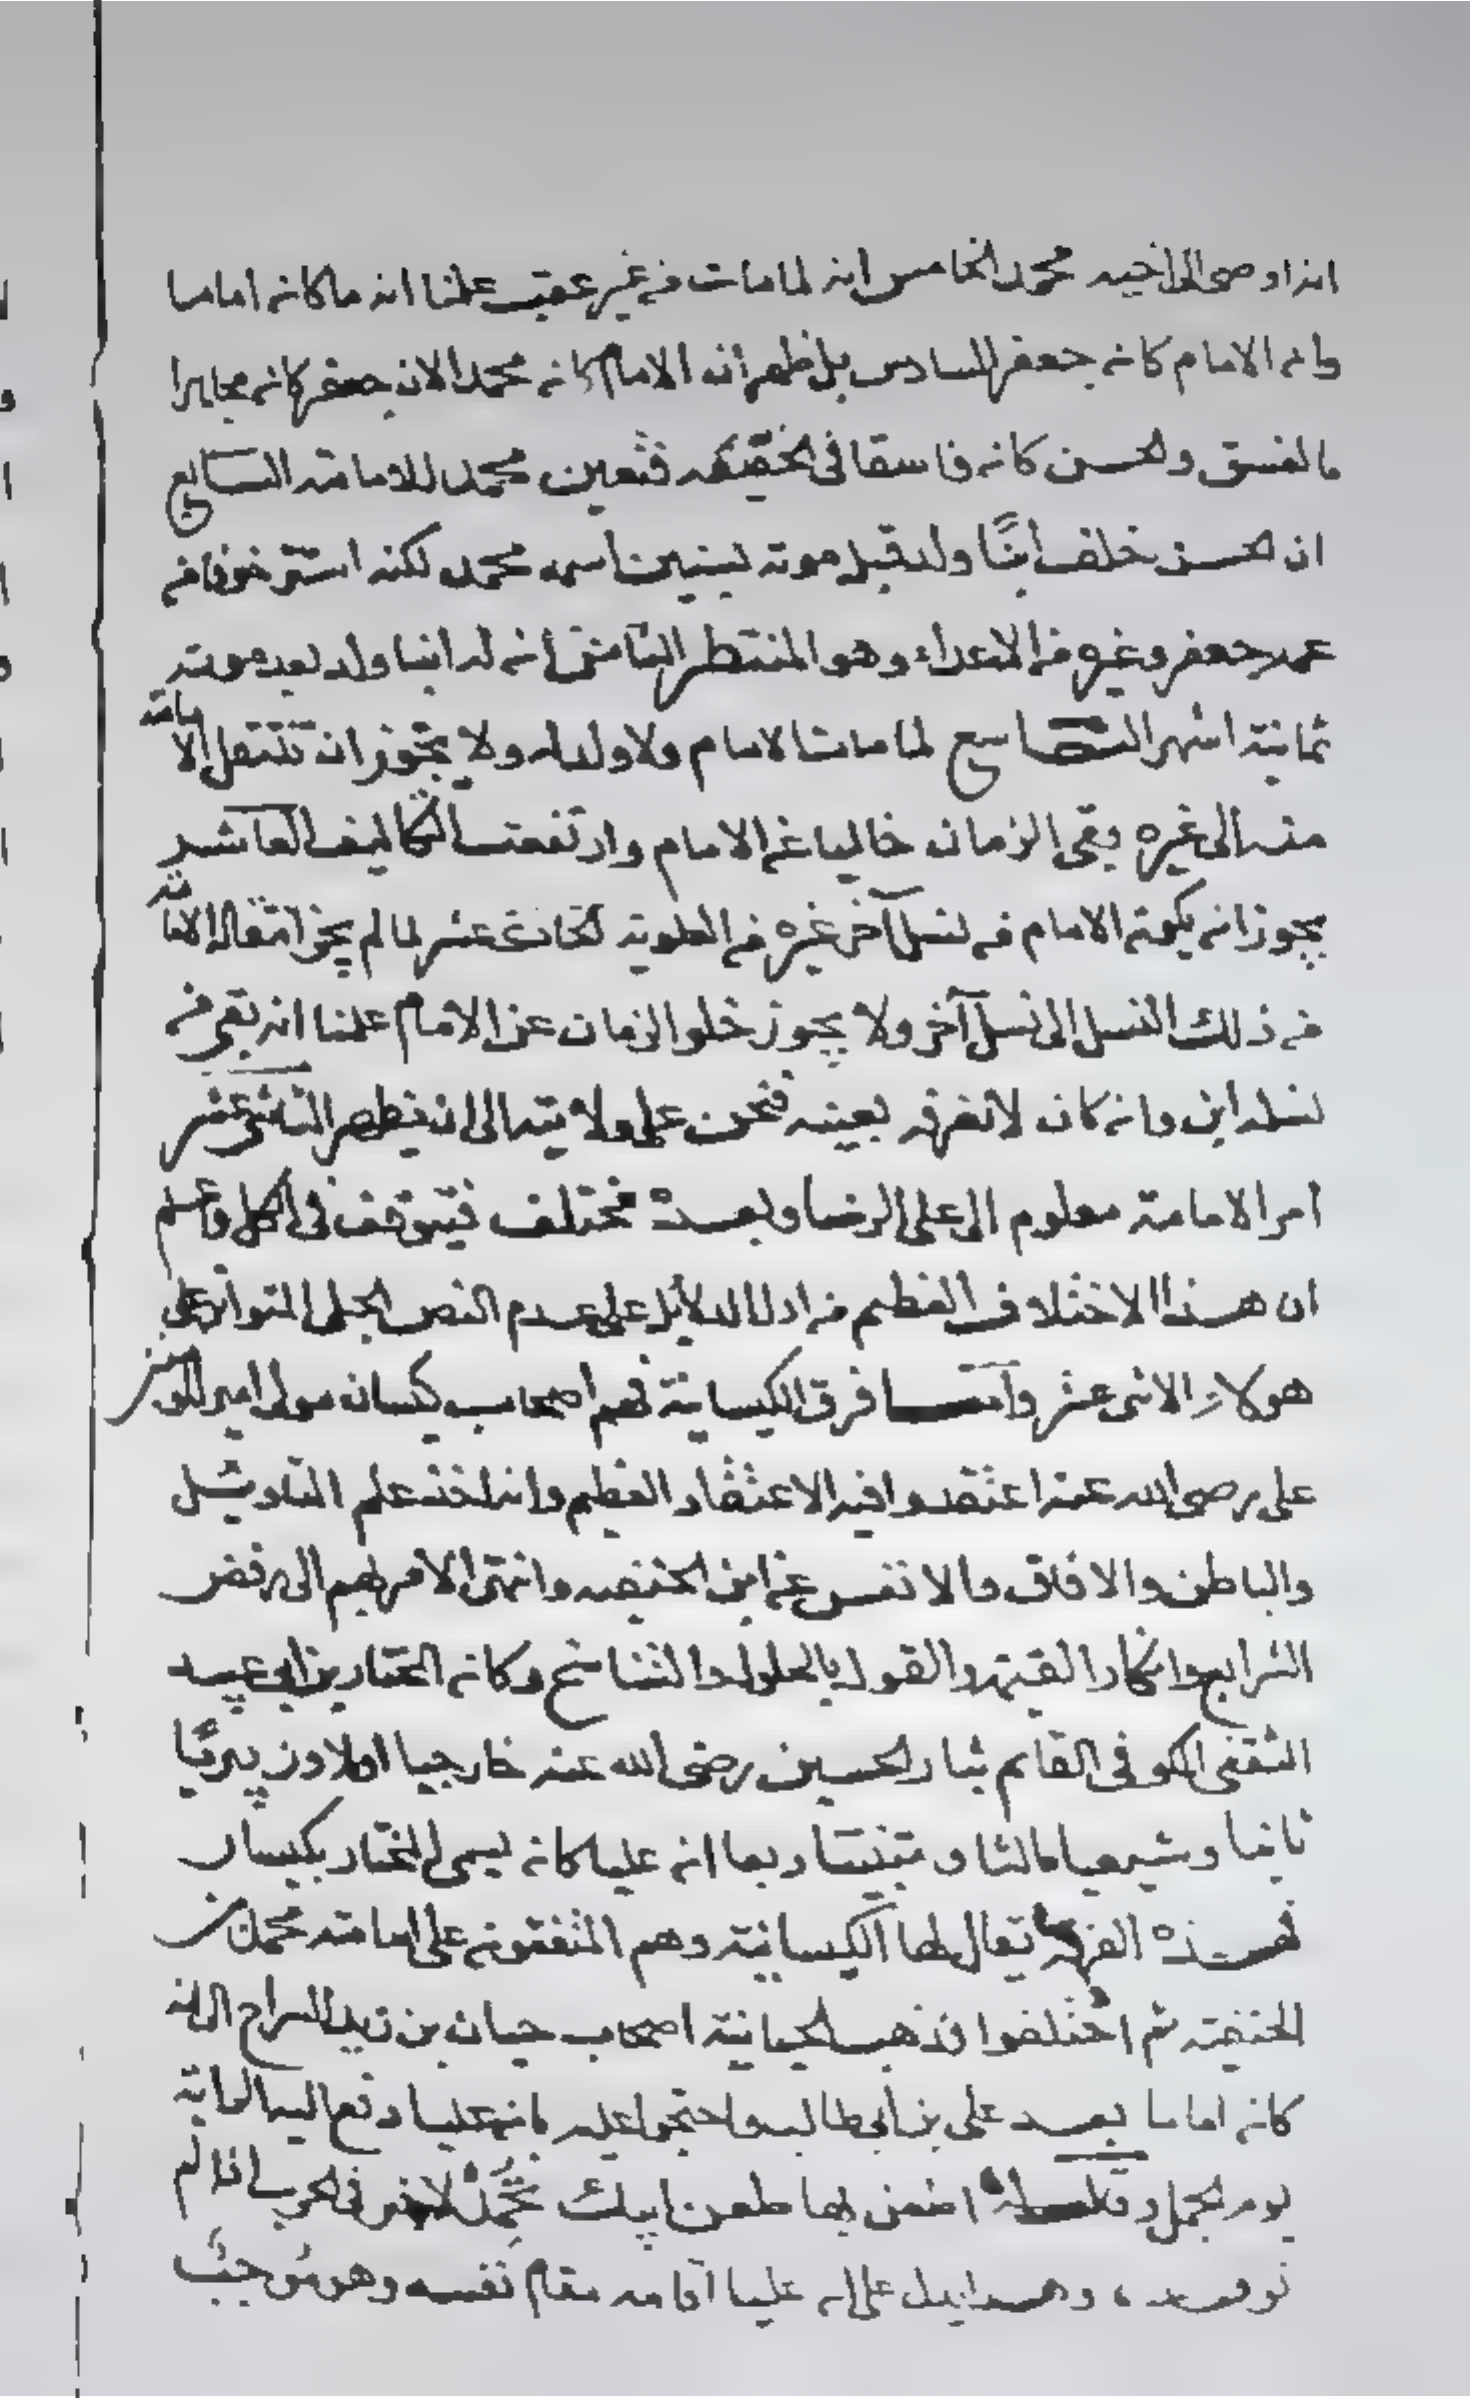 انه اوصى الى اخيه محمد الخامس انه لما مات من غير عقب علمنا انه ما كان اماما
وان الامام كان جعفر السادس بل ظهر ان الامام كان محمد الان جعفر كان مجاهرا
بالفسق والحسن كان فاسقا فى الخفية فتعين محمد للامامة السابع
ان الحسن خلف ابنًا ولد قبل موته بسنين اسمه محمد لكنه استتر خوفا من
عمه جعفر وغيره من الاعداء وهو المنتظر الثامن ان له ابنا ولد بعد موته
ثمانية اشهر التاسع لما مات الامام ولا ولد له ولا يجوز ان تنتقل الامامة
منه الى غيره بقى الزمان خاليا عن الامام وارتفعت التكاليف العاشر
يجوز ان يكون الامام من نسل آخر غيره من العلوية الحادى عشر لما لم يجز انتقال الامامة
من ذلك النسل الى نسل آخر ولا يجوز خلو الزمان عن الامام علمنا انه بقى من
نسله ابن وان كان لا نعرفه بعينه فنحن على ولايته الى ان يظهر الثانى عشر
امر الامامة معلوم الى على الرضا وبعده مختلف فيتوقف فى الكل واعلم
ان هذا الاختلاف العظيم من ادل الدلائل على عدم النص الجلى المتواتر على
هولاء الاثنى عشر واما فرق الكيسانية فهم اصحاب كيسان مولى امير المومنين
على رضى الله عنه اعتقدوا فيه الاعتقاد العظيم وانه اخذ علم التاويل
والباطن والافاق والانفس عن ابن الحنفيه وانتهى الامر بهم الى رفض
الشرايع وانكار القيمة والقول بالحلول والتناسخ وكان المختار بن ابى عبيد
الثقفى الكوفى القايم بثار الحسين رضى الله عنه خارجيا اولا وزبيريًا
ثانيا وشيعيا ثالثا و ربما ان عليا كان يسمى المختار بكيسان
فهذه الفرقة يقال لها الكيسانية وهم المتفقون على امامة محمد بن
الحنفية ثم اختلفوا فذهب الحيانية اصحاب حيان بن زيد السراج الى انه
كان اماما بعد على بن ابى طالب واحتجوا عليه بان عليا دفع اليه الراية
يوم الجمل وقال له اطعن بها طعن ابيك تحمد لا خير فى الحرب اذا لم
توقد ، وهذا يدل على ان عليا اقامه مقام نفسه وهو يوجب